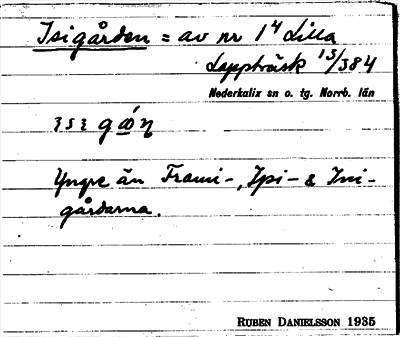 Isigården = av nr 1⁴ Lilla
Lappträsk 13/384
Nederkalix sn o. tg. Norrb. län
Yngre än Frami-, Ipi- & Ini-
gårdarna.
RUBEN DANIELSSON 1935